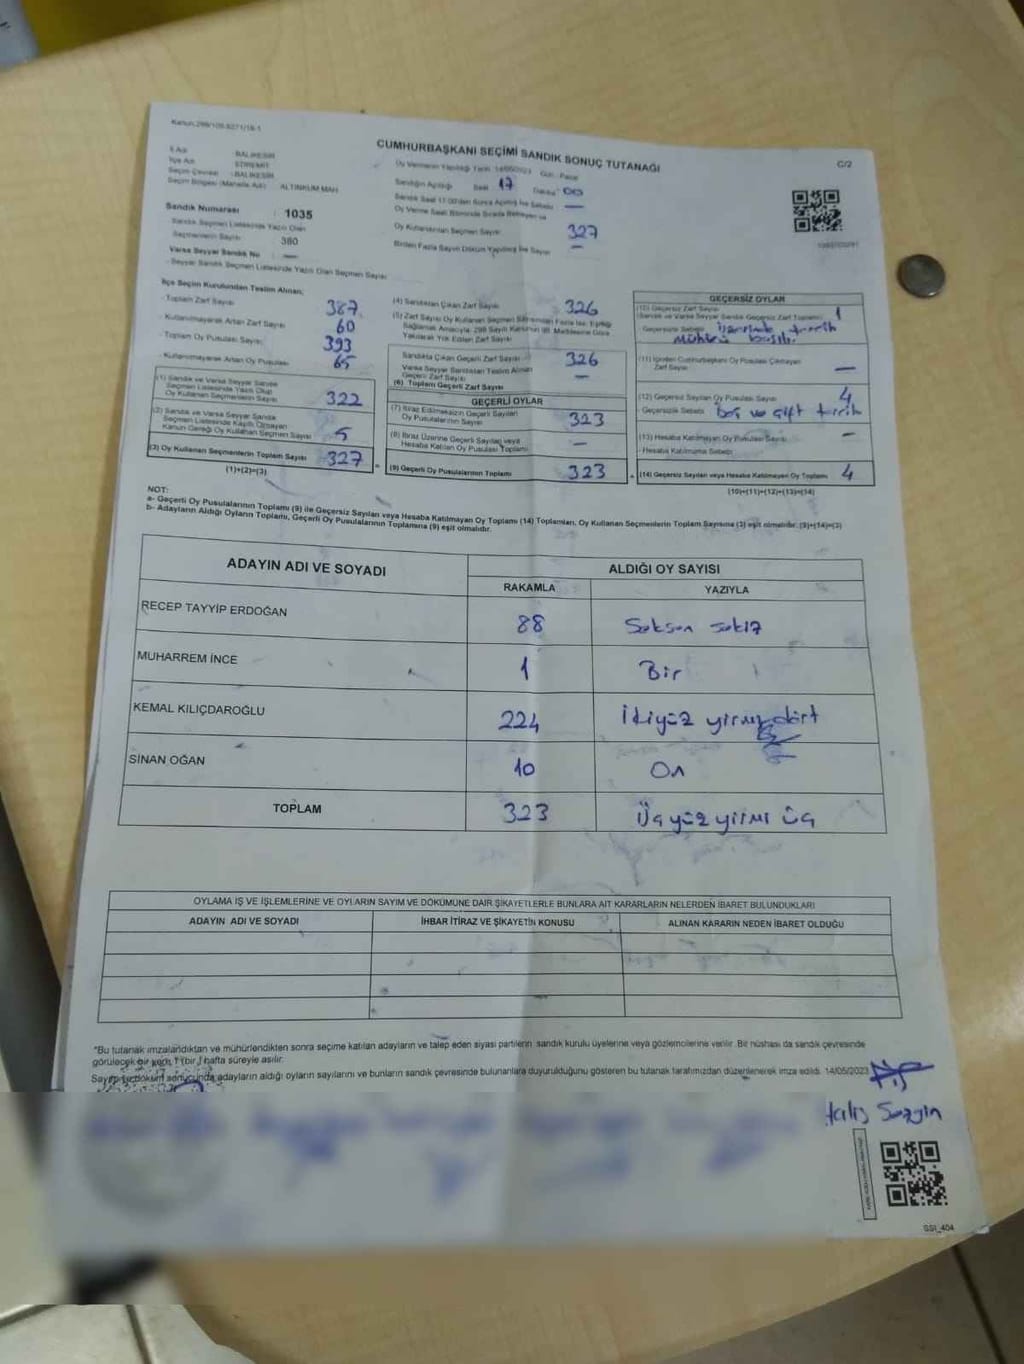 Kanun:298/105-6271/18-1
CUMHURBAŞKANI SEÇİMİ SANDIK SONUÇ TUTANAĞI
C/2
İl Adı : BALIKESİR
İlçe Adı : EDREMİT
Seçim Çevresi : BALIKESİR
Seçim Bölgesi (Mahalle Adı) : ALTINKUM MAH.
Oy Vermenin Yapıldığı Tarih 14/05/2023 Gün : Pazar
Sandığın Açıldığı Saat 17 Dakika 00
Sandık Numarası : 1035
Sandık Seçmen Listesinde Yazılı Olan
Seçmenlerin Sayısı : 380
Varsa Seyyar Sandık No : —
Seyyar Sandık Seçmen Listesinde Yazılı Olan Seçmen Sayısı
Oy Kullananları Seçmen Sayısı 327
Birden Fazla Sayım Döküm Yapılmış İse Sayısı —
İlçe Seçim Kurulundan Teslim Alınan;
- Toplam Zarf Sayısı 387
- Kullanılmayarak Artan Zarf Sayısı 60
- Toplam Oy Pusulası Sayısı 393
- Kullanılmayarak Artan Oy Pusulası 65
(1) Sandık ve Varsa Seyyar Sandık
Seçmen Listesinde Yazılı Olup
Oy Kullanan Seçmenlerin Sayısı 322
(2) Sandık ve Varsa Seyyar Sandık
Seçmen Listesinde Kayıtlı Olmayan
Kanun Gereği Oy Kullanan Seçmen Sayısı 5
(3) Oy Kullanan Seçmenlerin Toplam Sayısı 327
(1)+(2)=(3)
(4) Sandıktan Çıkan Zarf Sayısı 326
(5) Zarf Sayısı Oy Kullanan Seçmen Sayısından Fazla İse, Eşitliği
Sağlamak Amacıyla, 298 Sayılı Kanunun 98. Maddesine Göre
Yakılarak Yok Edilen Zarf Sayısı
Sandıkta Çıkan Geçerli Zarf Sayısı 326
Varsa Seyyar Sandıktan Teslim Alınan
Geçerli Zarf Sayısı —
(6) Toplam Geçerli Zarf Sayısı
GEÇERLİ OYLAR
(7) İtiraz Edilmeksizin Geçerli Sayılan
Oy Pusulalarının Sayısı 323
(8) İtiraz Üzerine Geçerli Sayılan veya
Hesaba Katılan Oy Pusulası Toplamı —
(9) Geçerli Oy Pusulalarının Toplamı 323
GEÇERSİZ OYLAR
(10) Geçersiz Zarf Sayısı
(Sandık ve Varsa Seyyar Sandık Geçersiz Zarf Toplamı) 1
Geçersizlik Sebebi içerisinde tercih
mühürü basılı.
(11) İçinden Cumhurbaşkanı Oy Pusulası Çıkmayan
Zarf Sayısı —
(12) Geçersiz Sayılan Oy Pusulası Sayısı 4
Geçersizlik Sebebi boş ve çift tercih
(13) Hesaba Katılmayan Oy Pusulası Sayısı —
- Hesaba Katılmama Sebebi
(14) Geçersiz Sayılan veya Hesaba Katılmayan Oy Toplamı 4
(10)+(11)+(12)+(13)=(14)
NOT:
a- Geçerli Oy Pusulalarının Toplamı (9) ile Geçersiz Sayılan veya Hesaba Katılmayan Oy Toplamı (14) Toplamları, Oy Kullanan Seçmenlerin Toplam Sayısına (3) eşit olmalıdır. (9)+(14)=(3)
b- Adayların Aldığı Oyların Toplamı, Geçerli Oy Pusulalarının Toplamına (9) eşit olmalıdır.
ADAYIN ADI VE SOYADI
ALDIĞI OY SAYISI
RAKAMLA YAZIYLA
RECEP TAYYİP ERDOĞAN 88 Seksen sekiz
MUHARREM İNCE 1 Bir
KEMAL KILIÇDAROĞLU 224 İkiyüz yirmi dört
SİNAN OĞAN 10 On
TOPLAM 323 Üçyüz yirmi üç
OYLAMA İŞ VE İŞLEMLERİNE VE OYLARIN SAYIM VE DÖKÜMÜNE DAİR ŞİKAYETLERLE BUNLARA AİT KARARLARIN NELERDEN İBARET BULUNDUKLARI
ADAYIN ADI VE SOYADI İHBAR İTİRAZ VE ŞİKAYETİN KONUSU ALINAN KARARIN NEDEN İBARET OLDUĞU
*Bu tutanak imzalandıktan ve mühürlendikten sonra seçime katılan adayların ve talep eden siyasi partilerin sandık kurulu üyelerine veya gözlemcilerine verilir. Bir nüshası da sandık çevresinde
görülecek bir yere 1 (bir) hafta süreyle asılır.
Sayım ve döküm sonucunda adayların aldığı oyların sayılarını ve bunların sandık çevresinde bulunanlara duyurulduğunu gösteren bu tutanak tarafımızdan düzenlenerek imza edildi. 14/05/2023
Halis Sezgin
GSI_404